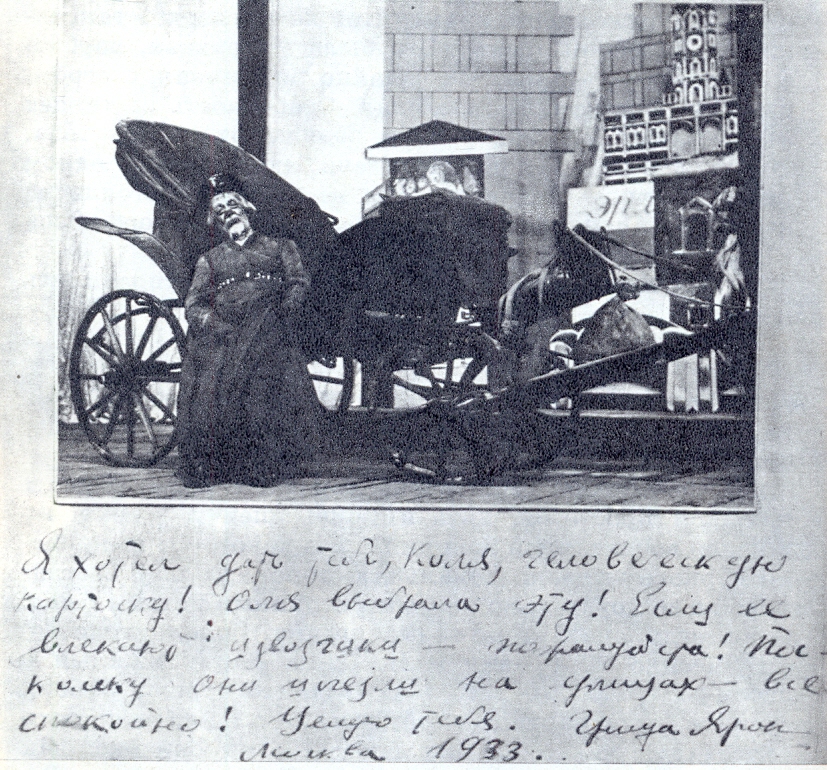 Я хотел дать тебе, Коля, человеческую
карточку! Оля выбрала эту! Если ее
влекают извозчики — пожалуйста! Пос-
кольку они исчезли на улицах — все
спокойно! Целую тебя. Гриша Ярон
Москва 1933.